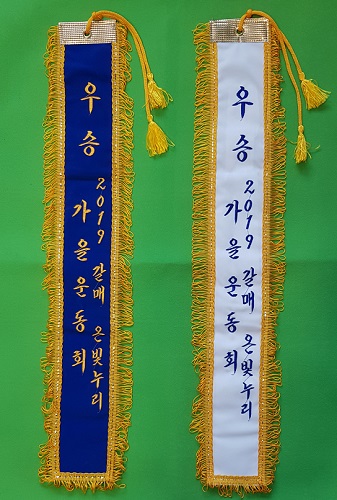 우승
2019 갈매 온빛누리
가을운동회
우승
2019 갈매 온빛누리
가을운동회